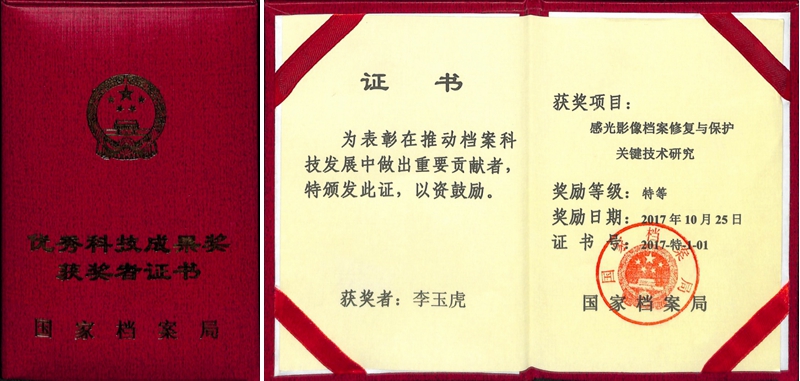 优秀科技成果奖
获奖者证书
国家档案局
证 书
为表彰在推动档案科
技发展中做出重要贡献者，
特颁发此证，以资鼓励。
获奖者：李玉虎
获奖项目：
感光影像档案修复与保护
关键技术研究
奖励等级：特等
奖励日期：2017年10月25日
证 书 号：2017-特-1-01
国家档案局
国家档案局